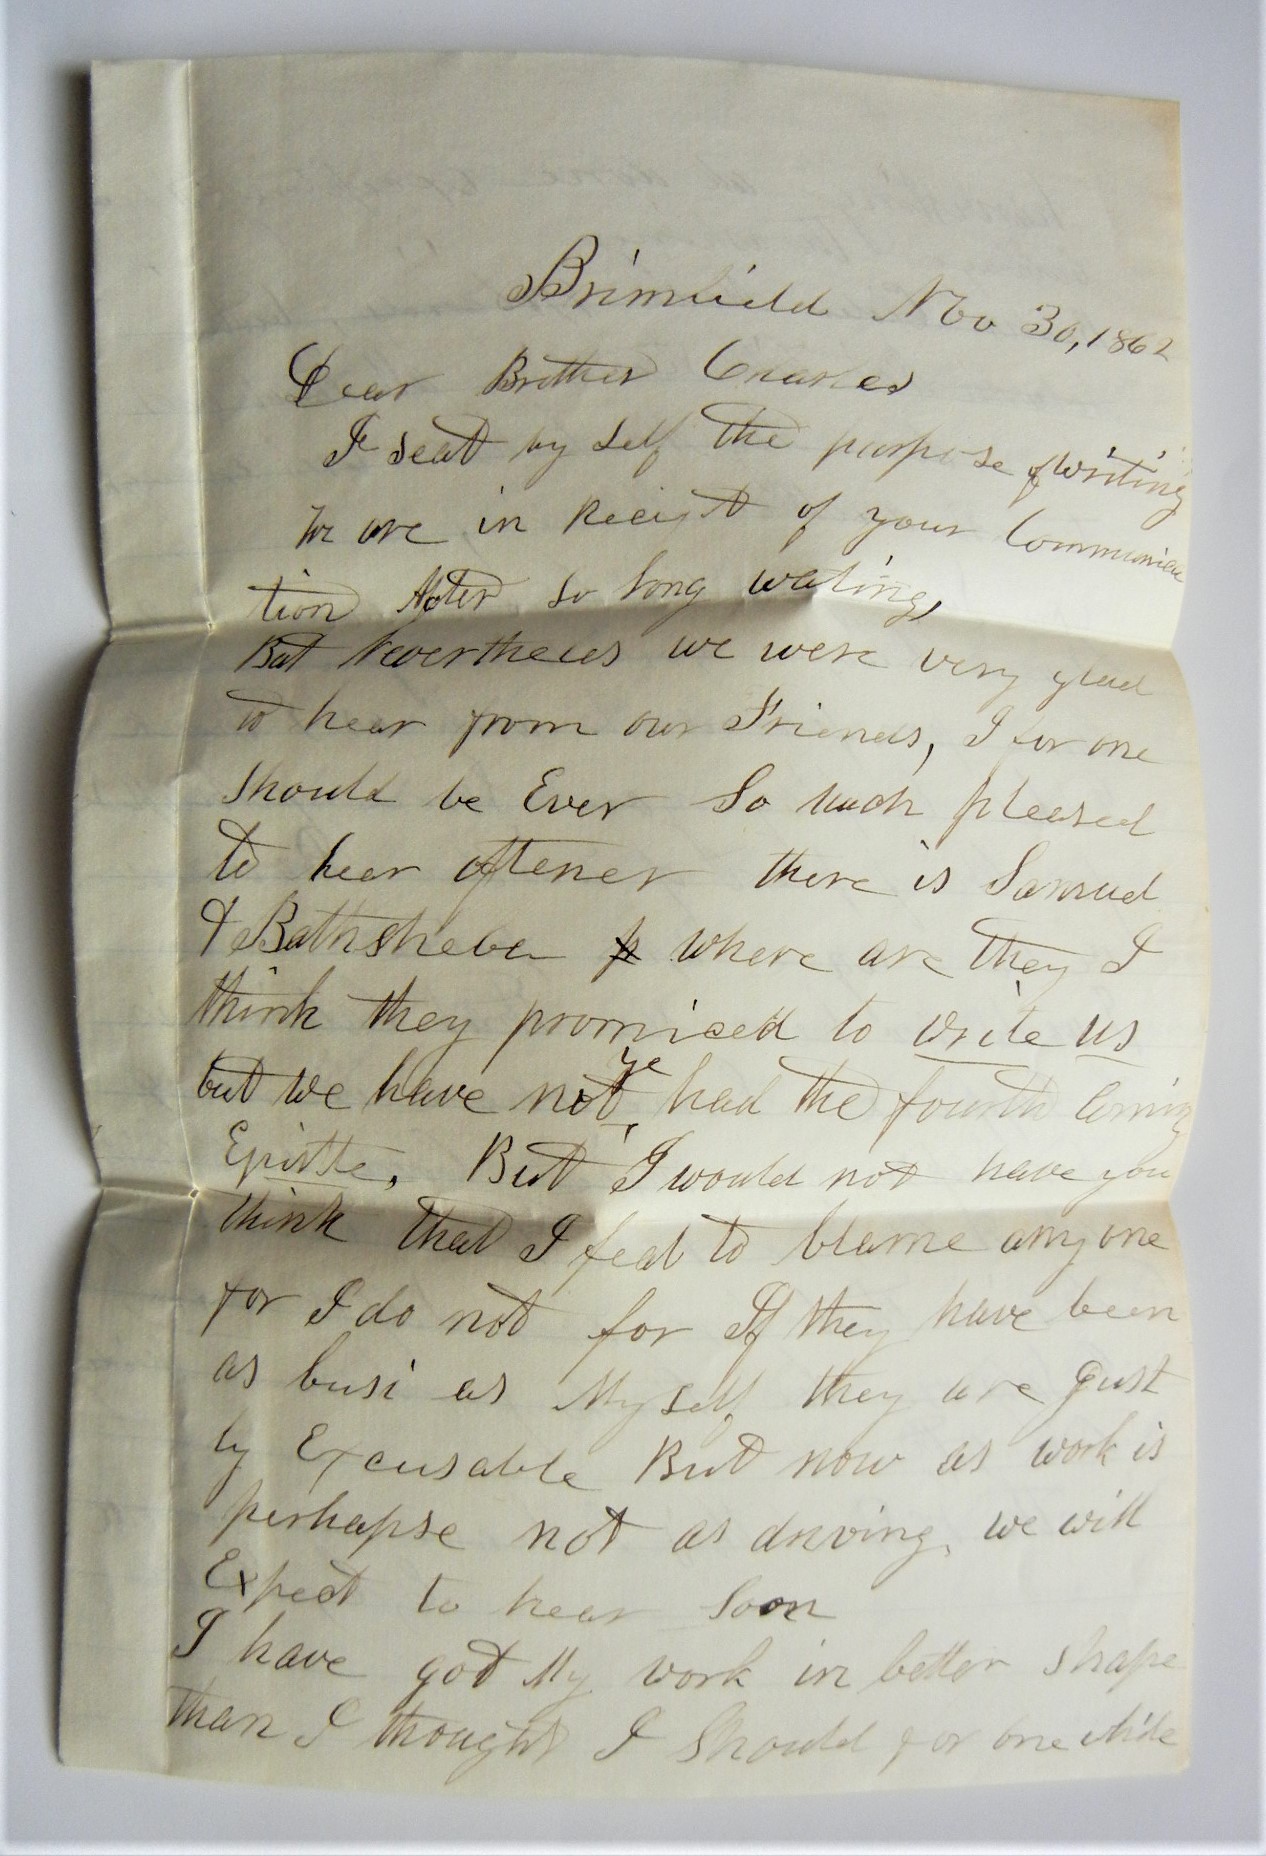 Brimfield Nov 30, 1862
Dear Brother Charles
I seat my self the purpose of writing
We are in Receipt of your Communica
tion After so long wating,
But Nevertheles we were very glad
to hear from our Friends, I for one
should be Ever So much pleased
to hear oftener there is Samuel
& Bathsheba where are they I
think they promiced to write us
but we have not ye had the fourth coming
Epistle. But I would not have you
think that I feal to blame any one
for I do not for If they have been
as busi as My self they are Just
ly Excusable But now as work is
perhapse not as driving, we will
Expect to hear Soon
I have got My work in better shape
than I thought I Should for one while